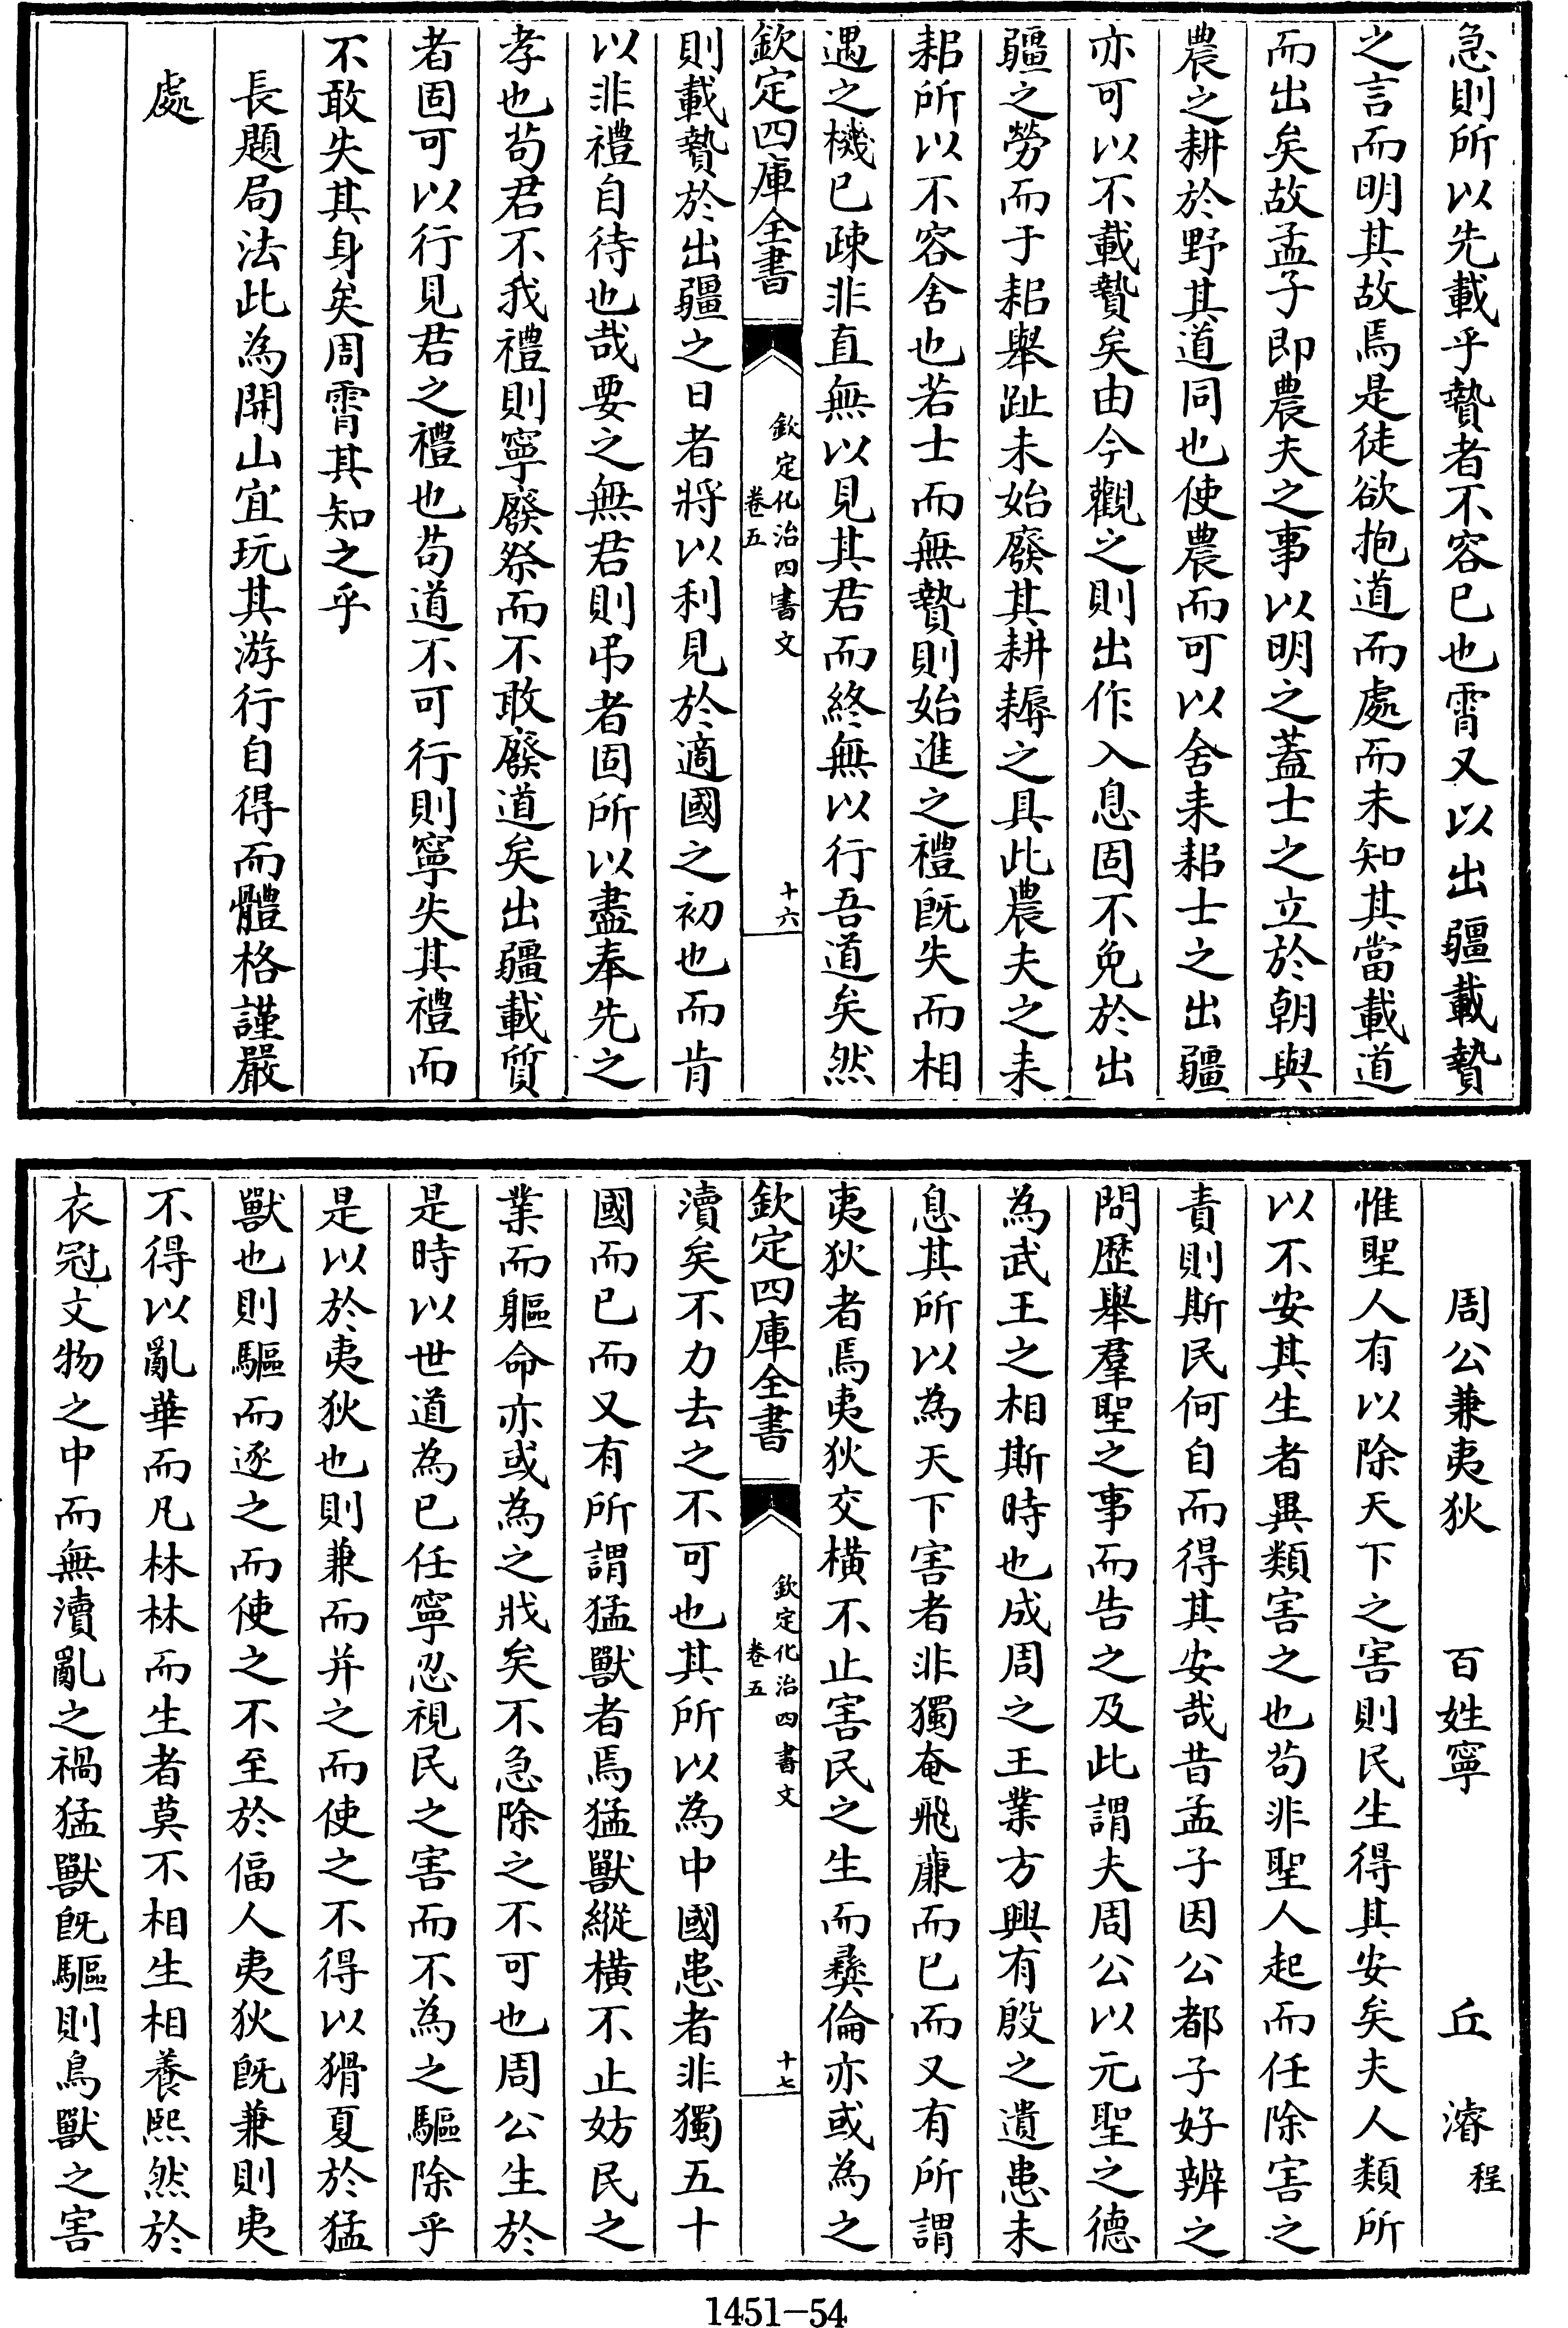 急則所以先載乎贄者不容已也霄又以出疆載贄
之言而明其故焉是徒欲抱道而處而未知其當載道
而出矣故孟子即農夫之事以明之蓋士之立於朝與
農之耕於野其道同也使農而可以舍耒耜士之出疆
亦可以不載贄矣由今觀之則出作入息固不免於出
疆之勞而于耜舉趾未始廢其耕耨之具此農夫之耒
耜所以不容舍也若士而無贄則始進之禮既失而相
遇之機已疎非直無以見其君而終無以行吾道矣然
欽定四庫全書
欽定化治四書文
卷五
十六
則載贄於出疆之日者將以利見於適國之初也而肯
以非禮自待也哉要之無君則弔者固所以盡奉先之
孝也茍君不我禮則寧廢祭而不敢廢道矣出疆載質
者固可以行見君之禮也茍道不可行則寧失其禮而
不敢失其身矣周霄其知之乎
長題局法此為開山宜玩其游行自得而體格謹嚴
處
周公兼夷狄 百姓寧 丘濬 程
惟聖人有以除天下之害則民生得其安矣夫人類所
以不安其生者異類害之也茍非聖人起而任除害之
責則斯民何自而得其安哉昔孟子因公都子好辨之
問歴舉羣聖之事而告之及此謂夫周公以元聖之德
為武王之相斯時也成周之王業方興有殷之遺患未
息其所以為天下害者非獨奄飛廉而已而又有所謂
夷狄者焉夷狄交橫不止害民之生而彝倫亦或為之
欽定四庫全書
欽定化治四書文
卷五
十七
瀆矣不力去之不可也其所以為中國患者非獨五十
國而已而又有所謂猛獸者焉猛獸縱橫不止妨民之
業而軀命亦或為之戕矣不急除之不可也周公生於
是時以世道為已任寧忍視民之害而不為之驅除乎
是以於夷狄也則兼而并之而使之不得以猾夏於猛
獸也則驅而逐之而使之不至於偪人夷狄既兼則夷
不得以亂華而凡林林而生者莫不相生相養熙然於
衣冠文物之中而無瀆亂之禍猛獸既驅則鳥獸之害
1451-54